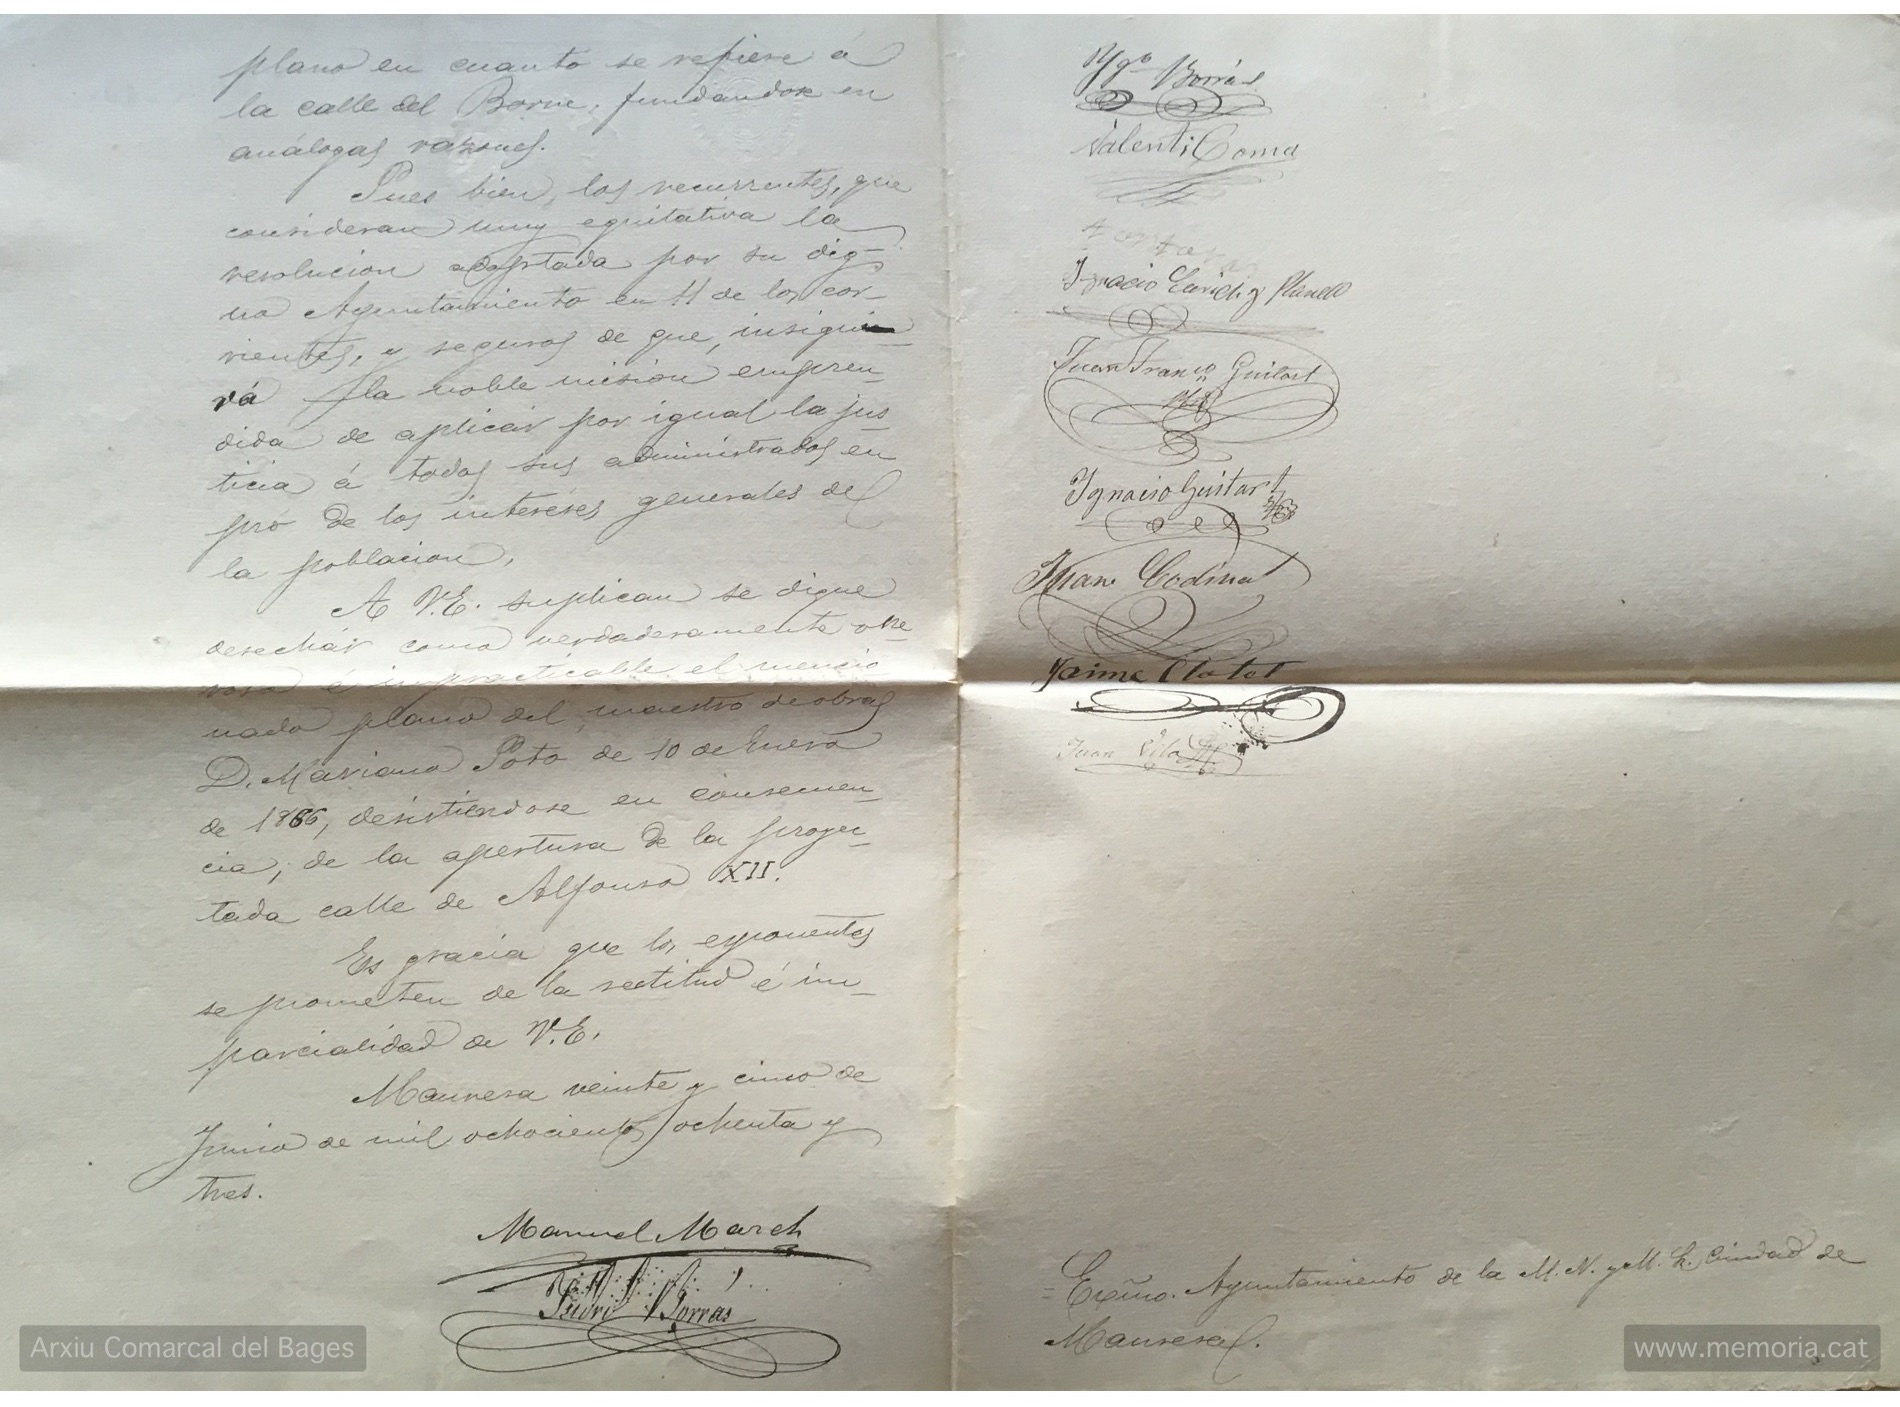 plano en cuanto se refiere á
la calle del Borne, fundandose en
análogas razones.
Pues bien, los recurrentes, que
consideran muy equitativa la
resolucion adoptada por su dig-
no Ayuntamiento en 11 de los cor-
rientes, y seguros de que,
rá la noble mision empren-
dida de aplicar por igual la jus
ticia á todos sus administrados en
pró de los intereses generales de
la poblacion,
A V.E. suplican se digne
desechar como verdaderamente one
roso é impracticable el mencio
nado plano del maestro de obras
D. Mariano Potó de 10 de Enero
de 1866, desistiendose en consecuen_
cia, de la apertura de la proyec_
tada calle de Alfonso XII.
Es gracia que los exponentes
se prometen de la rectitud é im_
parcialidad de V.E.
Manresa veinte y cinco de
Junio de mil ochocientos ochenta y
tres.
Manuel March
Isidro Borrás
Borrás
Valenti Coma
Ignacio Enrich y Planell
Juan Franco Guitart
Ignacio Guitart
Juan Codina
Jaime Clotet
Juan Vila
Exmo. Ayuntamiento de la M. N. y M. L. Ciudad de
Manresa.
Arxiu Comarcal del Bages
www.memoria.cat